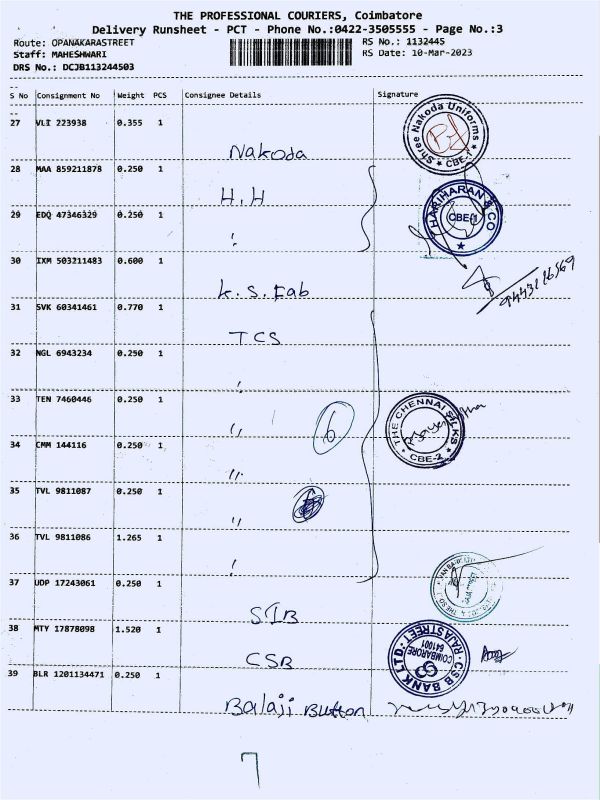 THE PROFESSIONAL COURIERS, Coimbatore
Delivery Runsheet - PCT - Phone No.:0422-3505555 - Page No.:3
Route: OPANAKARASTREET
RS No.: 1132445
Staff: MAHESHWARI
RS Date: 10-Mar-2023
DRS No.: DCJB113244503
S No Consignment No Weight PCS Consignee Details Signature
27 VLI 223938 0.355 1
Nakoda
Shree Nakoda Uniforms
CBE-1
28 MAA 859211878 0.250 1
H.H
HARIHARAN & CO
CBE-1
29 EDQ 47346329 0.250 1
30 IXM 503211483 0.600 1
K.S.Fab
31 SVK 60341461 0.770 1
TCS
32 NGL 6943234 0.250 1
33 TEN 7460446 0.250 1
,,
6
THE CHENNAI SILKS
CBE-2
34 CMM 144116 0.250 1
,,
35 TVL 9811087 0.250 1
,,
36 TVL 9811086 1.265 1
37 UDP 17243061 0.250 1
SIB
38 MTY 17878098 1.520 1
CSB
CSB BANK LTD.
RAJASTREET
COIMBATORE
641001
39 BLR 1201134471 0.250 1
Balaji Button
7